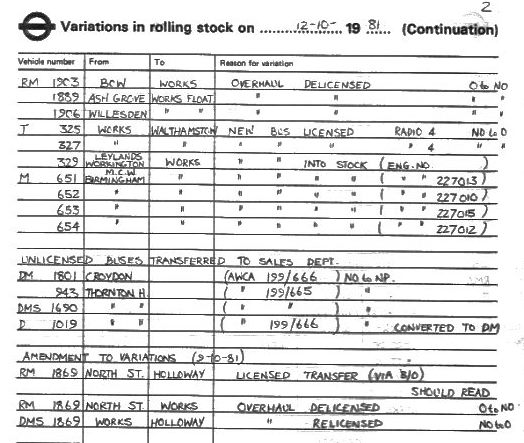 2
Variations in rolling stock on 12-10- 19 81. (Continuation)
Vehicle number From To Reason for variation
RM 1903 BCW WORKS OVERHAUL DELICENSED O to NO
1889 ASH GROVE WORKS FLOAT " " "
1906 WILLESDEN " " " " "
T 325 WORKS WALTHAMSTOW NEW BUS LICENSED RADIO 4 NO to O
327 " " " " " " 4 "
329 LEYLANDS WORKINGTON WORKS " " INTO STOCK (ENG. NO. )
M 651 M.C.W. BIRMINGHAM " " " " " ( " " 227013 )
652 " " " " " " ( " " 227010 )
653 " " " " " " ( " " 227015 )
654 " " " " " " ( " " 227012 )
UNLICENSED BUSES TRANSFERRED TO SALES DEPT.
DM 1801 CROYDON (AWCA 199/666 ) NO to NP.
943 THORNTON H. ( " 199/665 ) "
DMS 1690 " " ( " " ) "
D 1019 " " ( " 199/666 ) " CONVERTED TO DM
AMENDMENT TO VARIATIONS (9-10-81)
RM 1869 NORTH ST. HOLLOWAY LICENSED TRANSFER (VIA B/O)
SHOULD READ
RM 1869 NORTH ST. WORKS OVERHAUL DELICENSED O to NO
DMS 1869 WORKS HOLLOWAY " RELICENSED NO to O